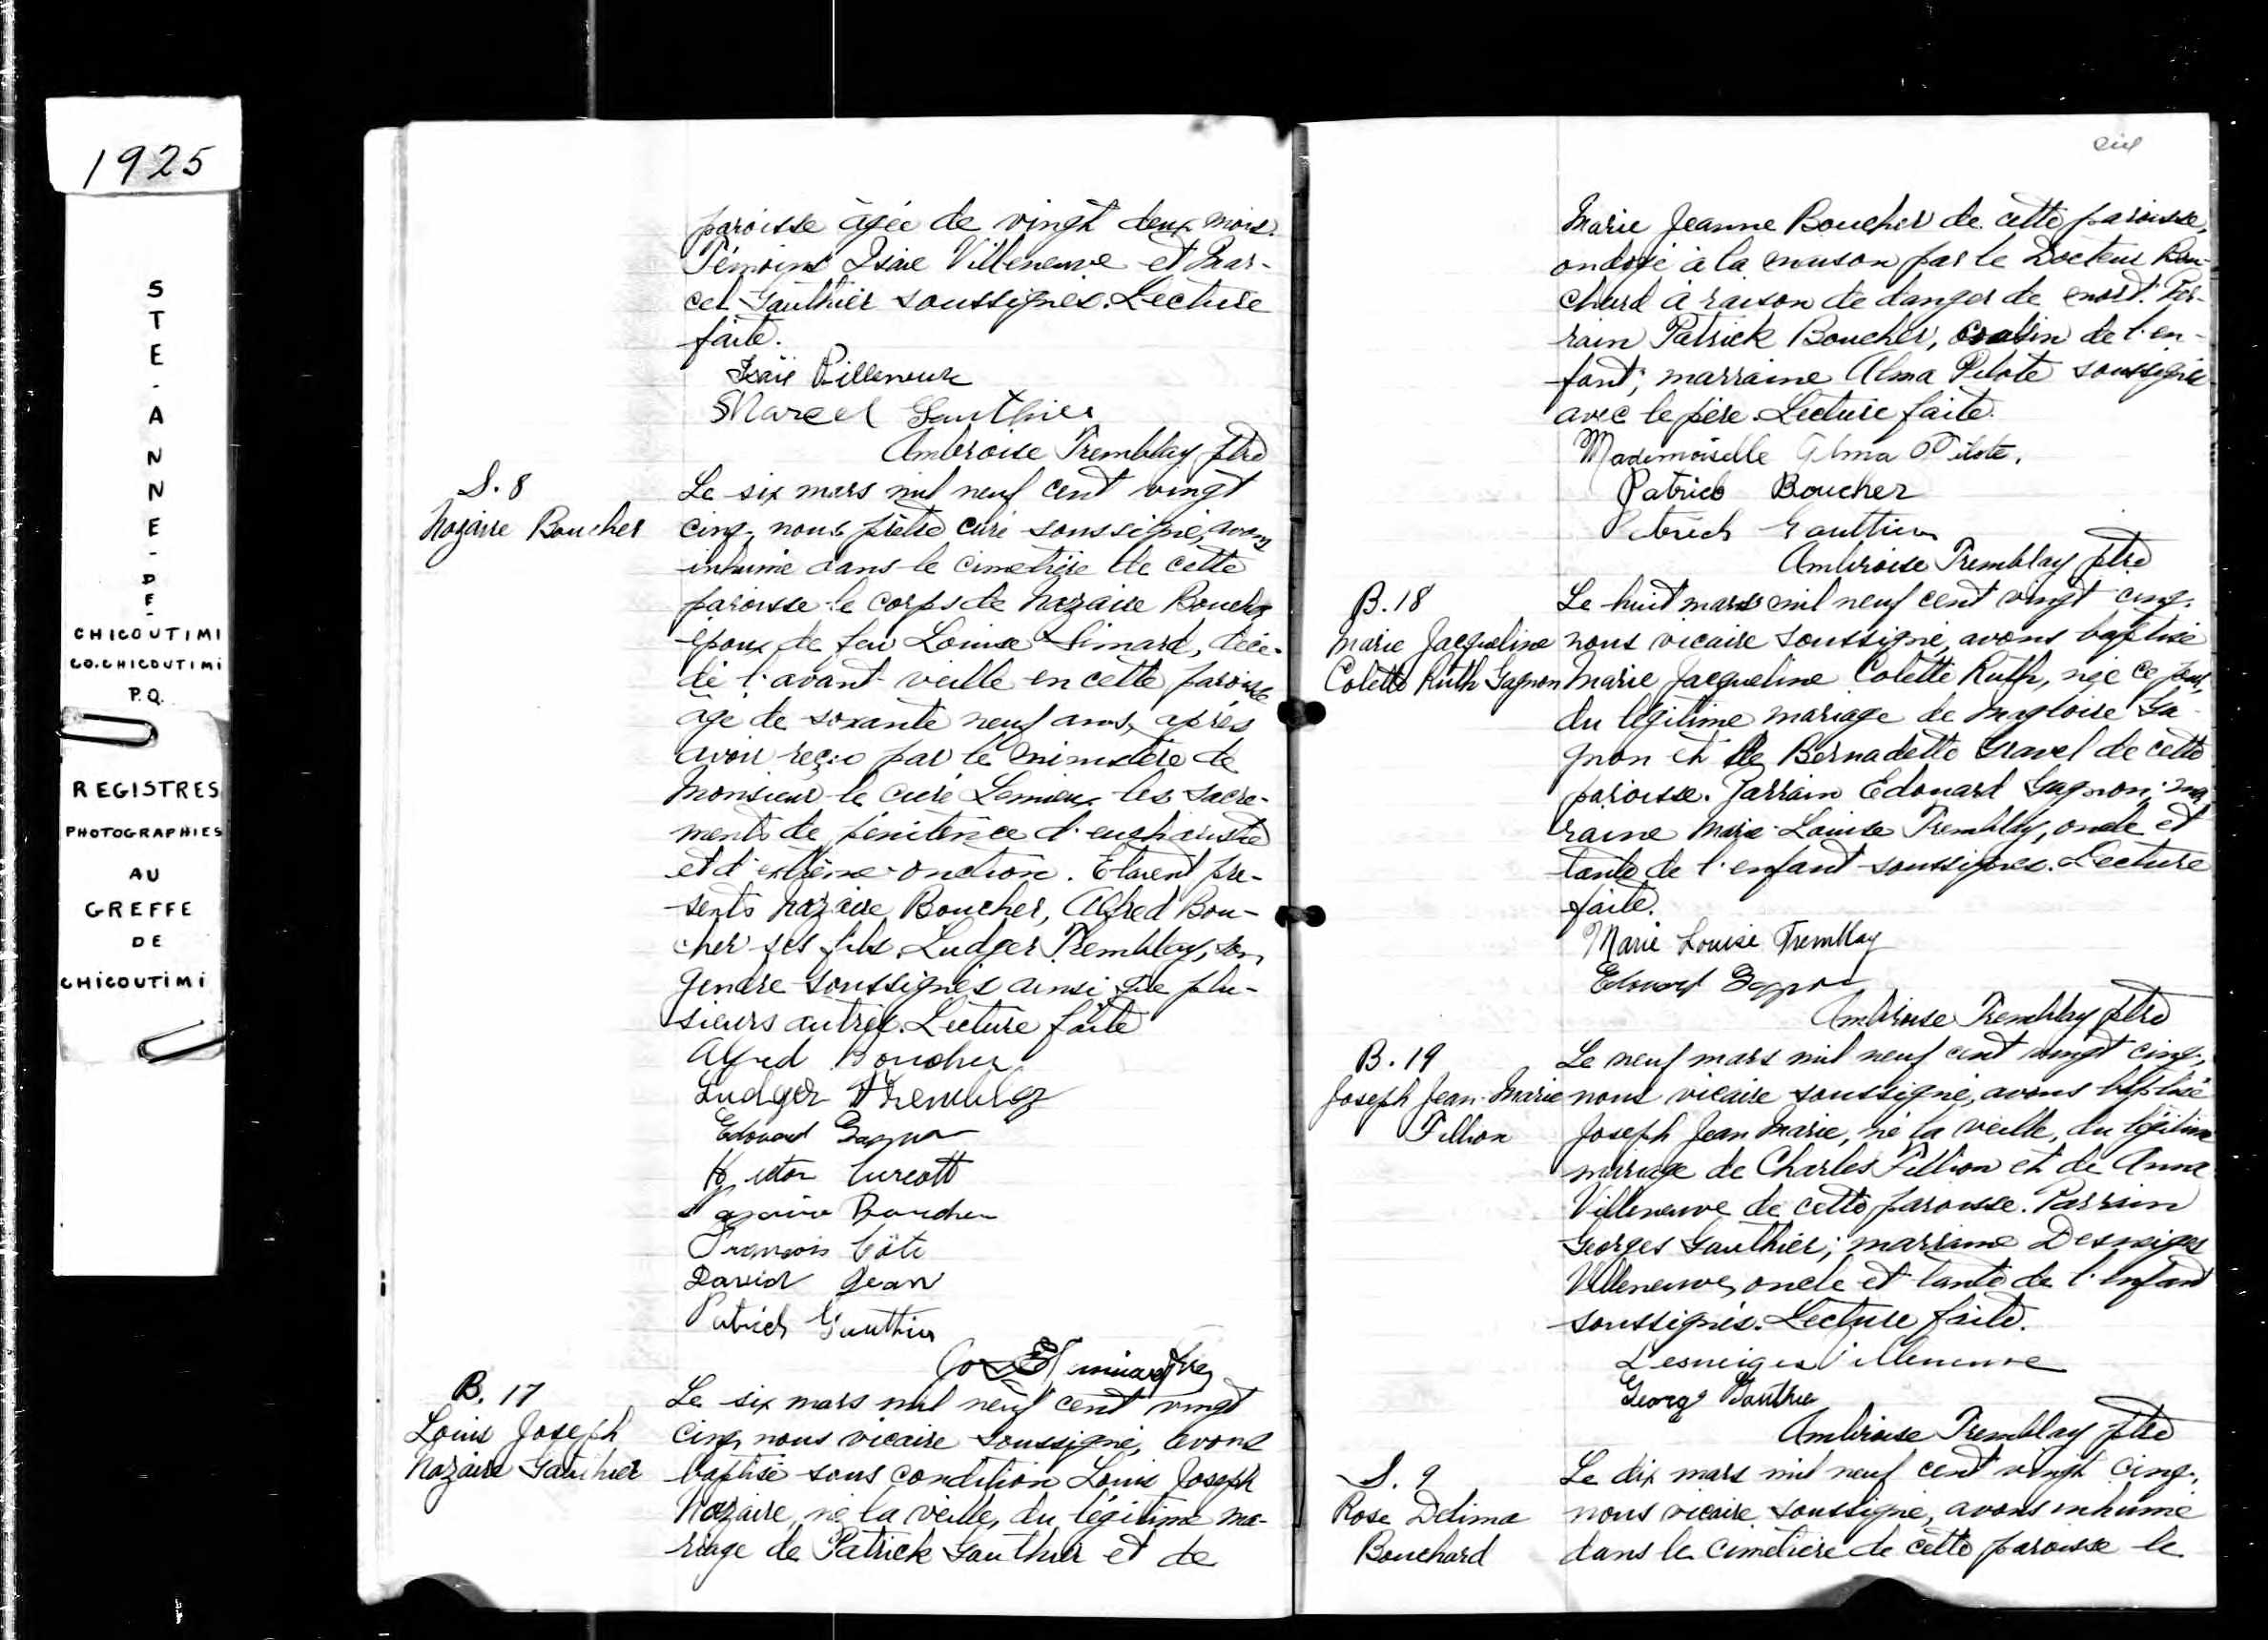 1925
STE-ANNE-DE-
CHICOUTIMI
CO. CHICOUTIMI
P.Q.
REGISTRES
PHOTOGRAPHIES
AU
GREFFE
DE
CHICOUTIMI
paroisse âgée de vingt deux mois.
Témoins Isaïe Villeneuve et Mar-
cel Gauthier soussignés. Lecture
faite.
Isaïe Villeneuve
Marcel Gauthier
Ambroise Tremblay ptre
S. 8
Nazaire Boucher
Le six mars mil neuf cent vingt
cinq, nous prêtre curé soussigné, avons
inhumé dans le cimetière de cette
paroisse le corps de Nazaire Boucher
époux de feu Louise Simard, décé-
dé l'avant veille en cette paroisse
âgé de soixante neuf ans, après
avoir reçu par le ministère de
Monsieur le curé Lemieux les sacre-
ments de pénitence d'eucharistie
et d'extrême-onction. Etaient pré-
sents Nazaire Boucher, Alfred Bou-
cher ses fils, Ludger Tremblay, son
gendre soussignés ainsi que plu-
sieurs autres. Lecture faite
Alfred Boucher
Ludger Tremblay
Edouard Gagnon
Hector Turcott
Nazaire Boucher
François Côté
David Jean
Patrick Gauthier
B. 17
Louis Joseph
Nazaire Gauthier
Le six mars mil neuf cent vingt
cinq, nous vicaire soussigné, avons
baptisé sous condition Louis Joseph
Nazaire, né la veille, du légitime ma-
riage de Patrick Gauthier et de
Marie Jeanne Boucher de cette paroisse,
ondoyé à la maison par le Docteur Bou-
chard à raison de danger de mort. Par-
rain Patrick Boucher, cousin de l'en-
fant; marraine Alma Pilote soussignés
avec le père. Lecture faite.
Mademoiselle Alma Pilote.
Patrick Boucher
Patrick Gauthier
Ambroise Tremblay ptre
B. 18
Marie Jacqueline
Colette Ruth Gagnon
Le huit mars mil neuf cent vingt cinq,
nous vicaire soussigné, avons baptisé
Marie Jacqueline Colette Ruth, née ce jour,
du légitime mariage de Magloire Ga-
gnon et de Bernadette Gravel de cette
paroisse. Parrain Edouard Gagnon; ma
raine Marie-Louise Tremblay, oncle et
tante de l'enfant soussignés. Lecture
faite.
Marie Louise Tremblay
Edouard Gagnon
Ambroise Tremblay ptre
B. 19
Joseph Jean-Marie
Fillion
Le neuf mars mil neuf cent vingt cinq,
nous vicaire soussigné, avons baptisé
Joseph Jean Marie, né la veille, du légitime
mariage de Charles Fillion et de Anna
Villeneuve de cette paroisse. Parrain
Georges Gauthier; marraine Desneiges
Villeneuve, oncle et tante de l'enfant
soussignés. Lecture faite.
Desneiges Villeneuve
Georg Gauthier
Ambroise Tremblay ptre
S. 9
Rose Délima
Bouchard
Le dix mars mil neuf cent vingt cinq,
nous vicaire soussigné, avons inhumé
dans le cimetière de cette paroisse le